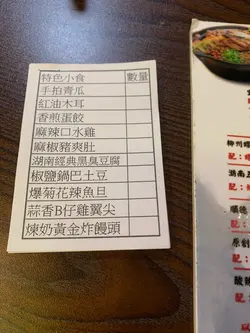 特色小食 數量
手拍青瓜
紅油木耳
香煎蛋餃
麻辣口水雞
麻椒豬爽肚
湖南經典黑臭豆腐
椒鹽鍋巴土豆
爆菊花辣魚旦
蒜香B仔雞翼尖
煉奶黃金炸饅頭
柳州螺
配：
湖南
配：
順德
配：
原創
配：
酸
配：